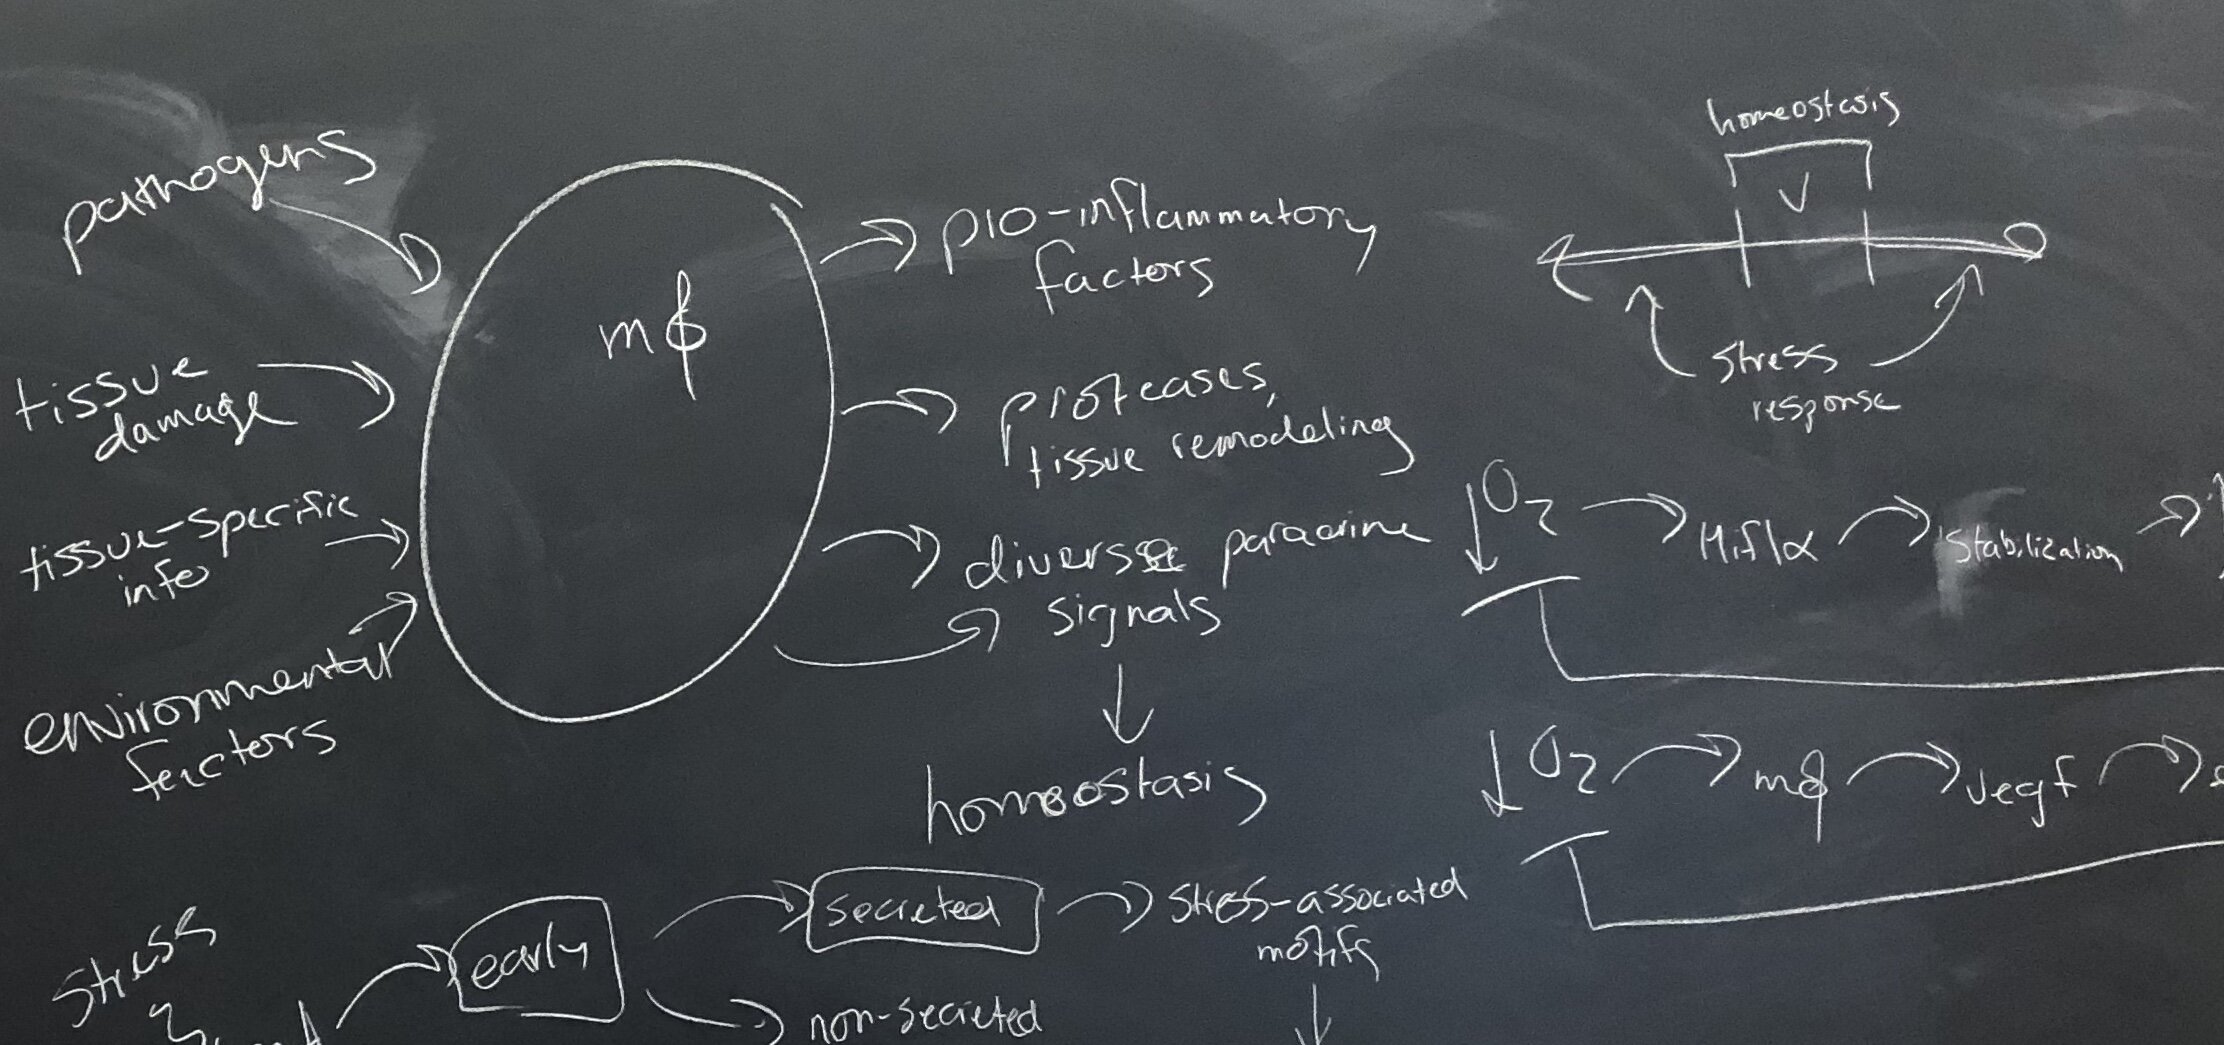 pathogens
tissue
damage
tissue-specific
info
environmental
factors
mɸ
pro-inflammatory
factors
proteases,
tissue remodeling
diverse paracrine
signals
homeostasis
homeostasis
V
stress
response
↓O₂ → Hif1α → stabilization →
↓O₂ → mɸ → vegf →
stress
early
secreted → stress-associated
motifs
non-secreted